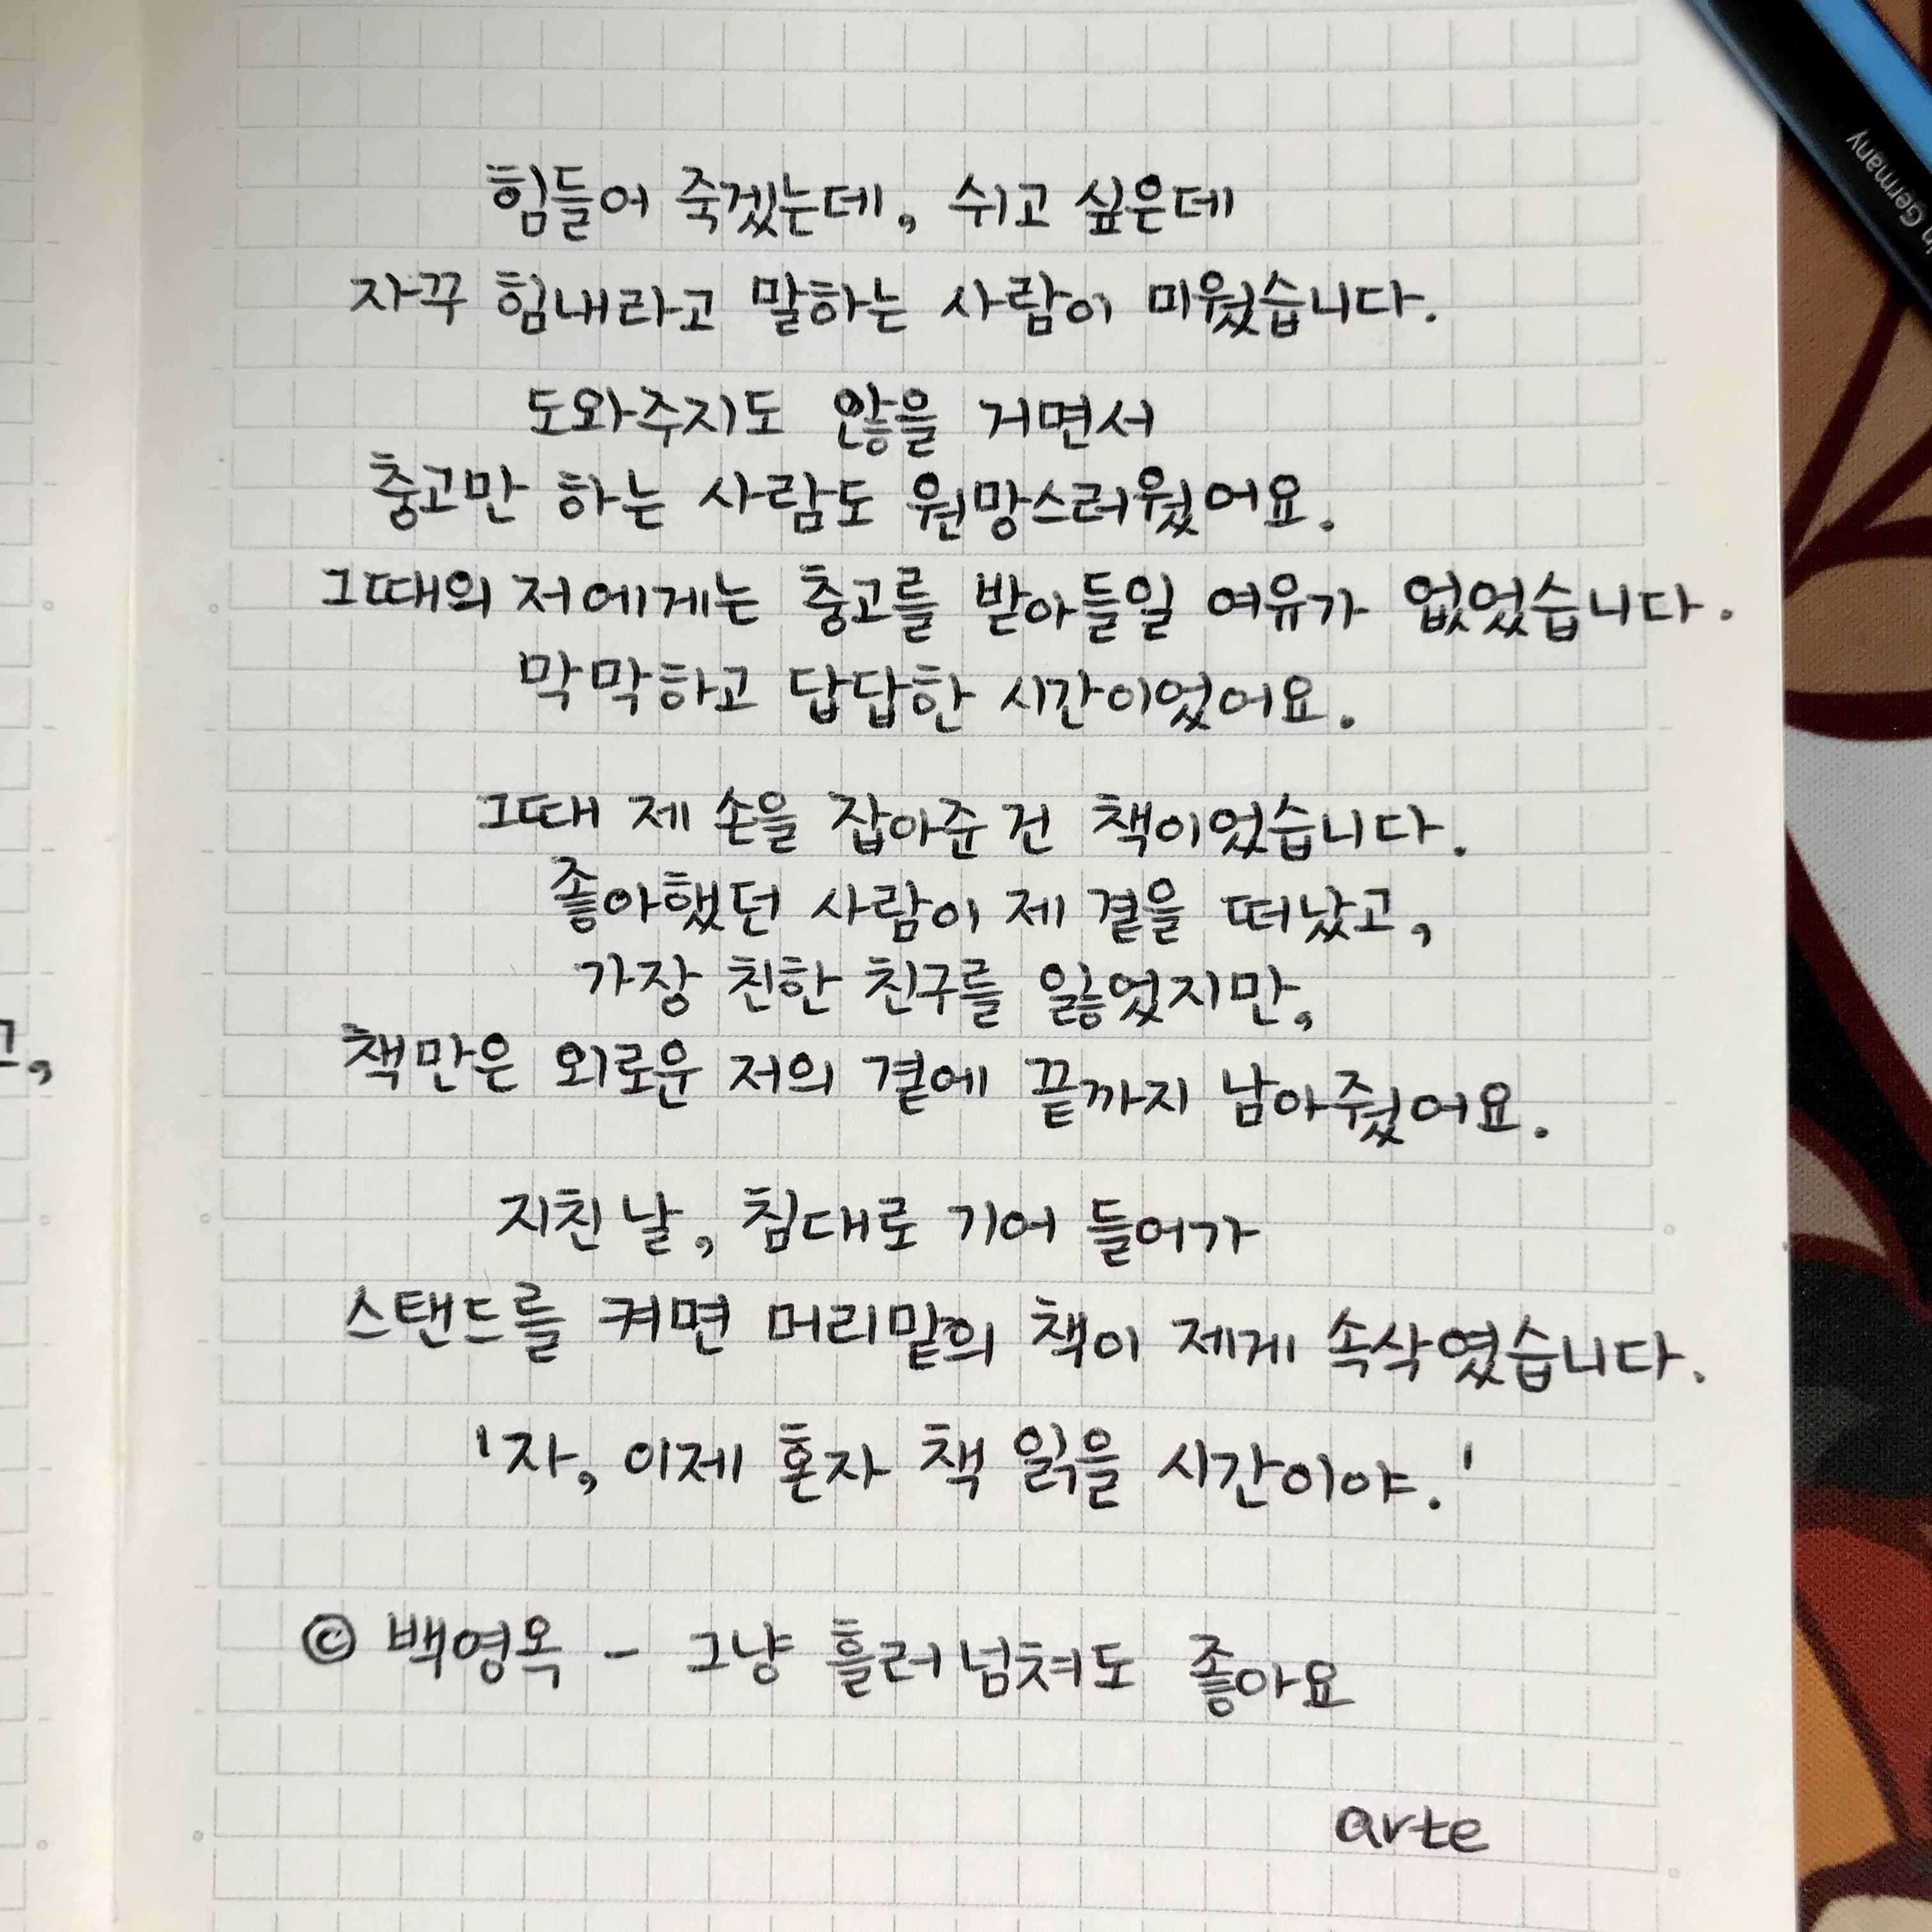 힘들어 죽겠는데, 쉬고 싶은데
자꾸 힘내라고 말하는 사람이 미웠습니다.
도와주지도 않을 거면서
충고만 하는 사람도 원망스러웠어요.
그때의 저에게는 충고를 받아들일 여유가 없었습니다.
막막하고 답답한 시간이었어요.
그때 제 손을 잡아준 건 책이었습니다.
좋아했던 사람이 제 곁을 떠났고,
가장 친한 친구를 잃었지만,
책만은 외로운 저의 곁에 끝까지 남아줬어요.
지친 날, 침대로 기어 들어가
스탠드를 켜면 머리맡의 책이 제게 속삭였습니다.
'자, 이제 혼자 책 읽을 시간이야.'
© 백영옥 - 그냥 흘러넘쳐도 좋아요
arte
Germany